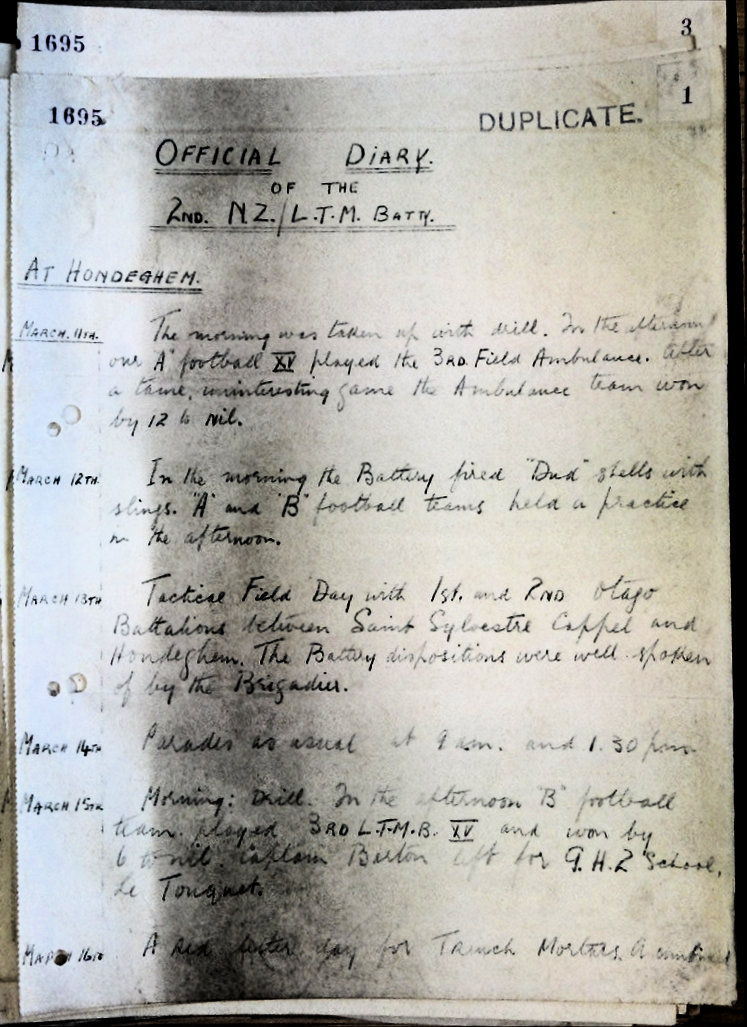 1695
3
1695
DUPLICATE.
1
OFFICIAL DIARY.
OF THE
2ND. N.Z./L.T.M. BATTY.
AT HONDEGHEM.
MARCH. 11TH. The morning was taken up with drill. In the afternoon
our "A" football XV played the 3RD. Field Ambulance. After
a tame, uninteresting game the Ambulance team won
by 12 to Nil.
MARCH 12TH. In the morning the Battery fired "Dud" shells with
slings. "A" and "B" football teams held a practice
in the afternoon.
MARCH 13TH Tactical Field Day with 1st. and 2ND Otago
Battalions between Saint Sylvestre Cappel and
Hondeghem. The Battery dispositions were well spoken
of by the Brigadier.
MARCH 14TH Parades as usual at 9 am. and 1.30 pm
MARCH 15TH Morning: Drill. In the afternoon "B" football
team played 3RD L.T.M.B. XV and won by
6 to nil. Captain left for G.H.Q School,
Le Touquet.
MARCH 16TH A red letter day for Trench Mortars. A combined